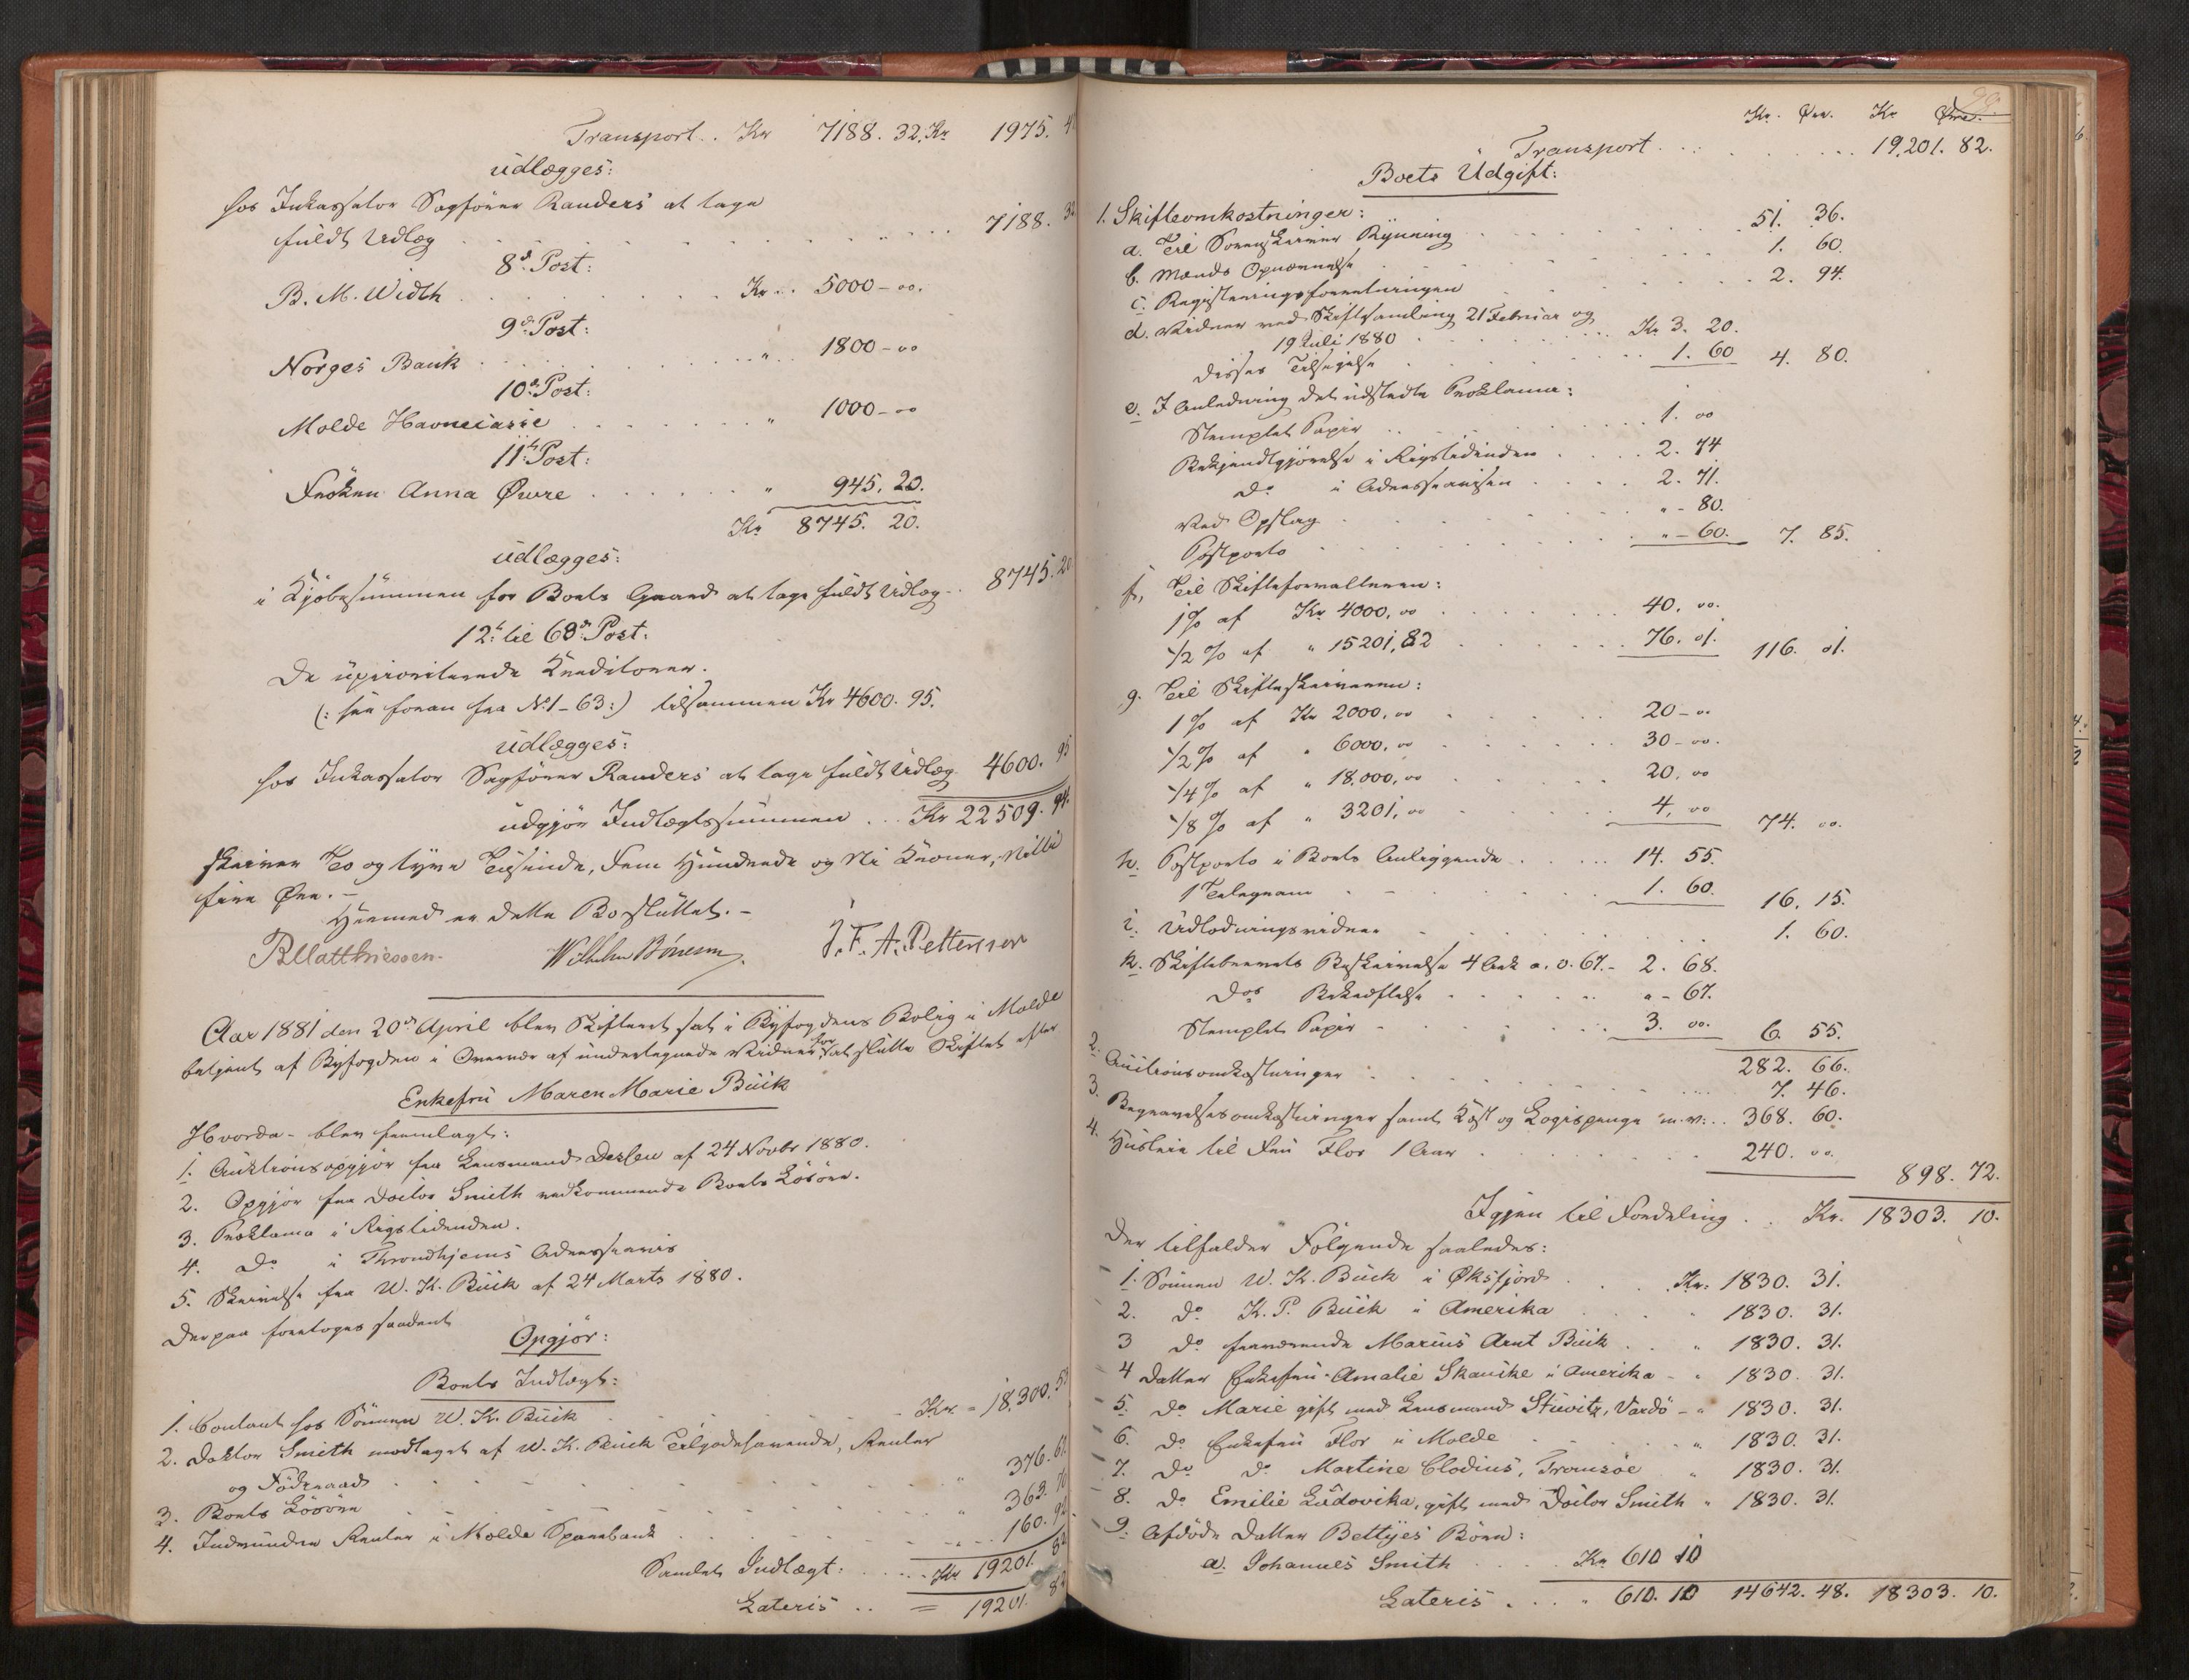 Transport .. Kr 7188. 32. Kr 1975. 4
udlægges:
hos Inkassator Sagfører Randers at tage
fuldt Udlæg . . . 7188. 32
8de Post:
B. M. Width . . . Kr .. 5000 - 00.
9de Post:
Norges Bank . . . " .. 1800 - 00
10de Post:
Molde Havnecasse . . . " 1000 - 00
11te Post:
Frøken Anna Øwre . . . " 945. 20.
Kr 8745. 20.
udlægges:
i Kjøbesummen for Boets Gaard at tage fuldt Udlæg .. 8745. 20
12te til 63de Post:
De upriviterede Kreditorer.
(: see foran fra No 1 - 63 :) tilsammen Kr 4600. 95.
udlægges:
hos Inkassator Sagfører Randers at tage fuldt Udlæg 4600. 95
udgjør Indtægtssummen ... Kr 22509. 94.
skriver To og tyve Tusinde, fem Hundrede og Ni Kroner, Nitti
fire Øre. -
Hermed er dette Bo sluttet. -
B Matthiessen. Wilhelm Bönesen. J. F. A. Pettersen
Aar 1881 den 20de April blev Skifteret sat i Byfogdens Bolig i Molde
betjent af Byfogden i Overvær af undertegnede Vidner for at slutte Skiftet efter
Enkefru Maren Marie Buck
Hvorda - blev fremlagt:
1. Auktionsopgjør fra Lensmand Dessen af 24 Novbr 1880.
2. Opgjør fra Doctor Smith vedkommende Boets Løsøre.
3. Proklama i Rigstidenden.
4. Do i Throndhjems Adresseavis
5. Skrivelse fra W. K. Buck af 24 Marts 1880.
Derpaa foretoges saadant
Opgjør:
Boets Indtægt:
1. Contant hos Sønnen W. K. Buck . . . Kr - 18.300. 53
2. Doktor Smith modtaget af W. K. Buck Tilgodehavende, Renter
og Føderaad . . . " 376. 61
3. Boets Løsøre . . . " 363. 76
4. Indvundne Renter i Molde Sparebank . . . 160. 92
Samlet Indtægt: .... Kr 19201. 82
Lateris .. = 19201. 82
Kr. Øre. Kr Øre.
Transport ... 19.201. 82.
Boets Udgift:
1. Skifteomkostninger:
a. Til Sorenskriver Rynning . . . 51. 36.
b. Mænds Opnævnelse . . . 1. 60.
c. Registreringsforretningen . . . 2. 94.
d. Vidner ved Skiftesamling 21 Februar og
19 Juli 1880 . . . Kr 3. 20.
disses Tilsigelse . . . 1. 60 4. 80.
e. I Anledning det udstedte Proklama:
Stemplet Papir . . . 1. 00
Bekjendtgjørelse i Rigstidenden . . . 2. 74
Do i Adresseavisen . . . 2. 71.
Ved Opslag . . . " - 80.
Postporto . . . " - 60. 7. 85.
f. Til Skifteforvalteren:
1 % af Kr 4000, 00 . . . 40. 00.
1/2 % af " 15201,82 . . . 76. 01. 116. 01.
g. Til Skifteskriveren:
1 % af Kr 2000, 00 . . . 20 - 00
1/2 % af " 6000, 00 . . . 30 - 00.
1/4 % af " 18.000, 00 . . . 20, 00
1/8 % af " 3201, 00 . . . 4, 00 74. 00.
h. Postporto i Boets Anliggende . . . 14. 55.
1 Telegram . . . 1. 60. 16. 15.
i. Udlodningsvidner . . . 1. 60.
k. Skiftebrevets Beskrivelse 4 Ark a. 0. 67. - 2. 68.
Dos Bekræftelse . . . " - 67.
Stemplet Papir . . . 3. 00. 6. 55.
282. 66.
2. Auctionsomkostninger . . . 7. 46.
3. Begravelsesomkostninger samt Kost og Logispenge m. v: .. 368. 60.
4. Husleie til Fru Flor 1 Aar . . . 240. 00.
898. 72.
Igjen til Fordeling .. Kr. 18303. 10.
Der tilfalder Følgende saaledes:
1. Sønnen W. K. Buck i Øksfjord . . . Kr. 1830. 31.
2. do K. P. Buck i Amerika . . . " 1830. 31.
3 do fraværende Marius Arnt Buck . . . " 1830. 31.
4 Datter Enkefru Amalie Skancke i Amerika - " 1830. 31.
5. do Marie gift med Lensmand Stiwitz, Vardø - " 1830. 31.
6. do Enkefru Flor i Molde . . . " 1830. 31.
7. do do Martine Clodius, Tromsøe " 1830. 31.
8. do Emilie Ludovika, gift med Doctor Smith " 1830. 31.
9. Afdøde Datter Bettyes Børn:
a. Johannes Smith .... Kr 610 10
Lateris .... " 610. 10 14642. 48. 18303. 10.